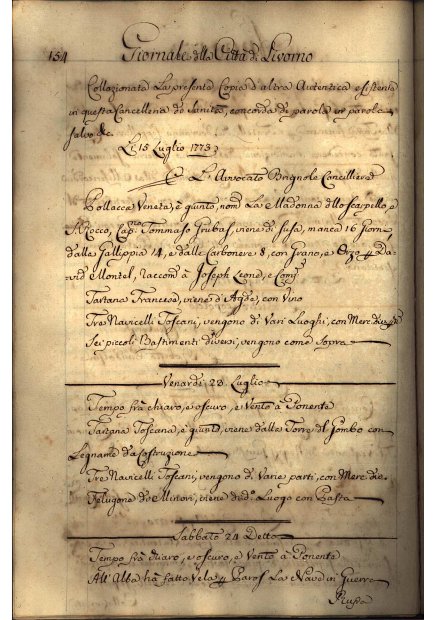 154 Giornale della Città di Livorno
Collazionata La presente Copia d'altra Autentica esistente
in questa Cancelleria di Sanità, concorda di parola in parola
salvo &c.
Li 15 Luglio 1773
L'Avvocato Brignole Cancelliere
Pollacca Veneta, è giunto, nom.ᵗᵃ La Madonna dello Scarpello e
S. Rocco, Cap.ⁿᵒ Tommaso viene di Susa, manca 16 Giorni
dalla 14, e dalle Carbonere 8, con Grano, e Orzo Da-
vid Montel, Raccom. à Joseph Leone, e Comp.
Tartana Francese, viene d'Agde, con Vino
Tre Navicelli Toscani, vengono di Vari Luoghi, con Merc.
Sei piccoli Bastimenti diversi, vengono come Sopra
Venerdì 23 Luglio
Tempo frà chiaro, e oscuro, e Vento à Ponente
Tartana Toscana, è giunto, viene dalla Torre con
Legname da Costruzione
Tre Navicelli Toscani, vengono di Varie parti, con Merc. die.
Felugone de Minori, viene di d.º Luogo con Pasta
Sabbato 24 Detto
Tempo frà chiaro, e oscuro, e Vento à Ponente
All'Alba hà fatto Vela La Nave da Guerra
Russa